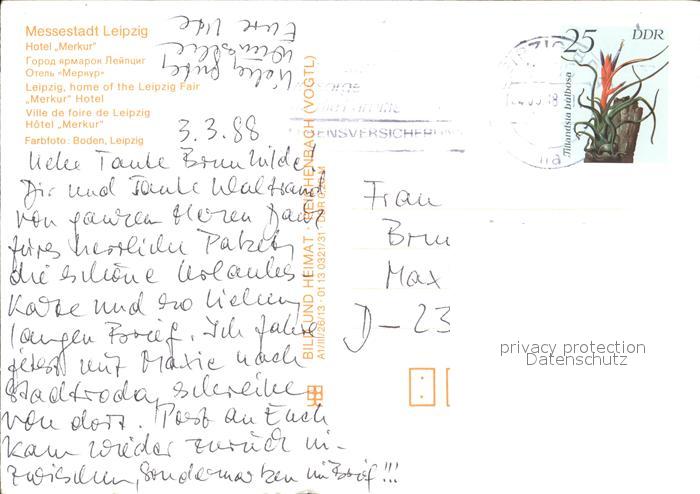 Messestadt Leipzig
Hotel „Merkur"
Город ярмарок Лейпциг
Отель «Меркур»
Leipzig, home of the Leipzig Fair
„Merkur" Hotel
Ville de foire de Leipzig
Hôtel „Merkur"
Farbfoto: Boden, Leipzig
3.3.88
Liebe Tante Brunhilde!
Dir und Tante Waltraud
von ganzem Herzen Dank
fürs herrliche Paket,
die schöne Urlaubs
Karte und so lieben
langen Brief. Ich fahre
jetzt mit Maxie nach
Stadtroda, schreibe
von dort. Post an Euch
kam wieder zurück in-
zwischen, Sondermarken im Brief!!!
Viele gute
Wünsche
Eure Ute
BILD UND HEIMAT · REICHENBACH (VOGTL)
A1/III/26/13 · 01 13 0321/31
25 DDR
Tillandsia bulbosa
ENSVERSICHERUNG
Frau
Brun
Max
D-23
privacy protection
Datenschutz